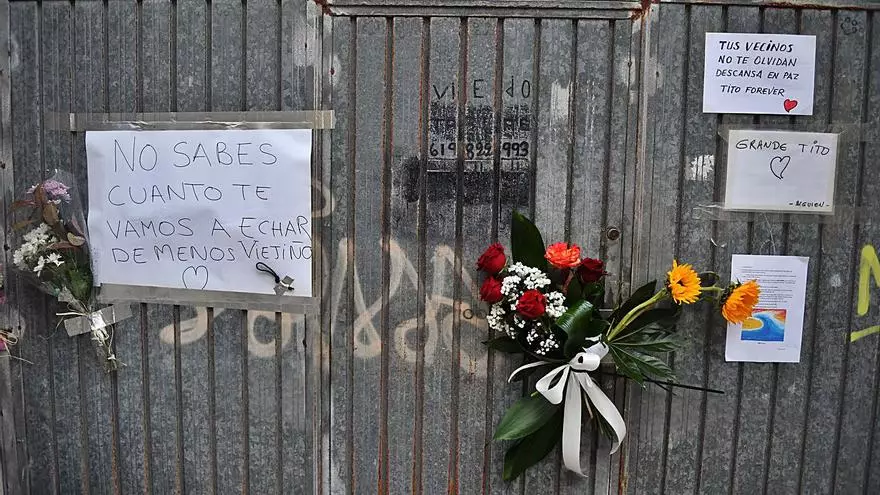 NO SABES
CUANTO TE
VAMOS A ECHAR
DE MENOS VIEJIÑO
619 822 993
TUS VECINOS
NO TE OLVIDAN
DESCANSA EN PAZ
TITO FOREVER
GRANDE TITO
-ALGUIEN-